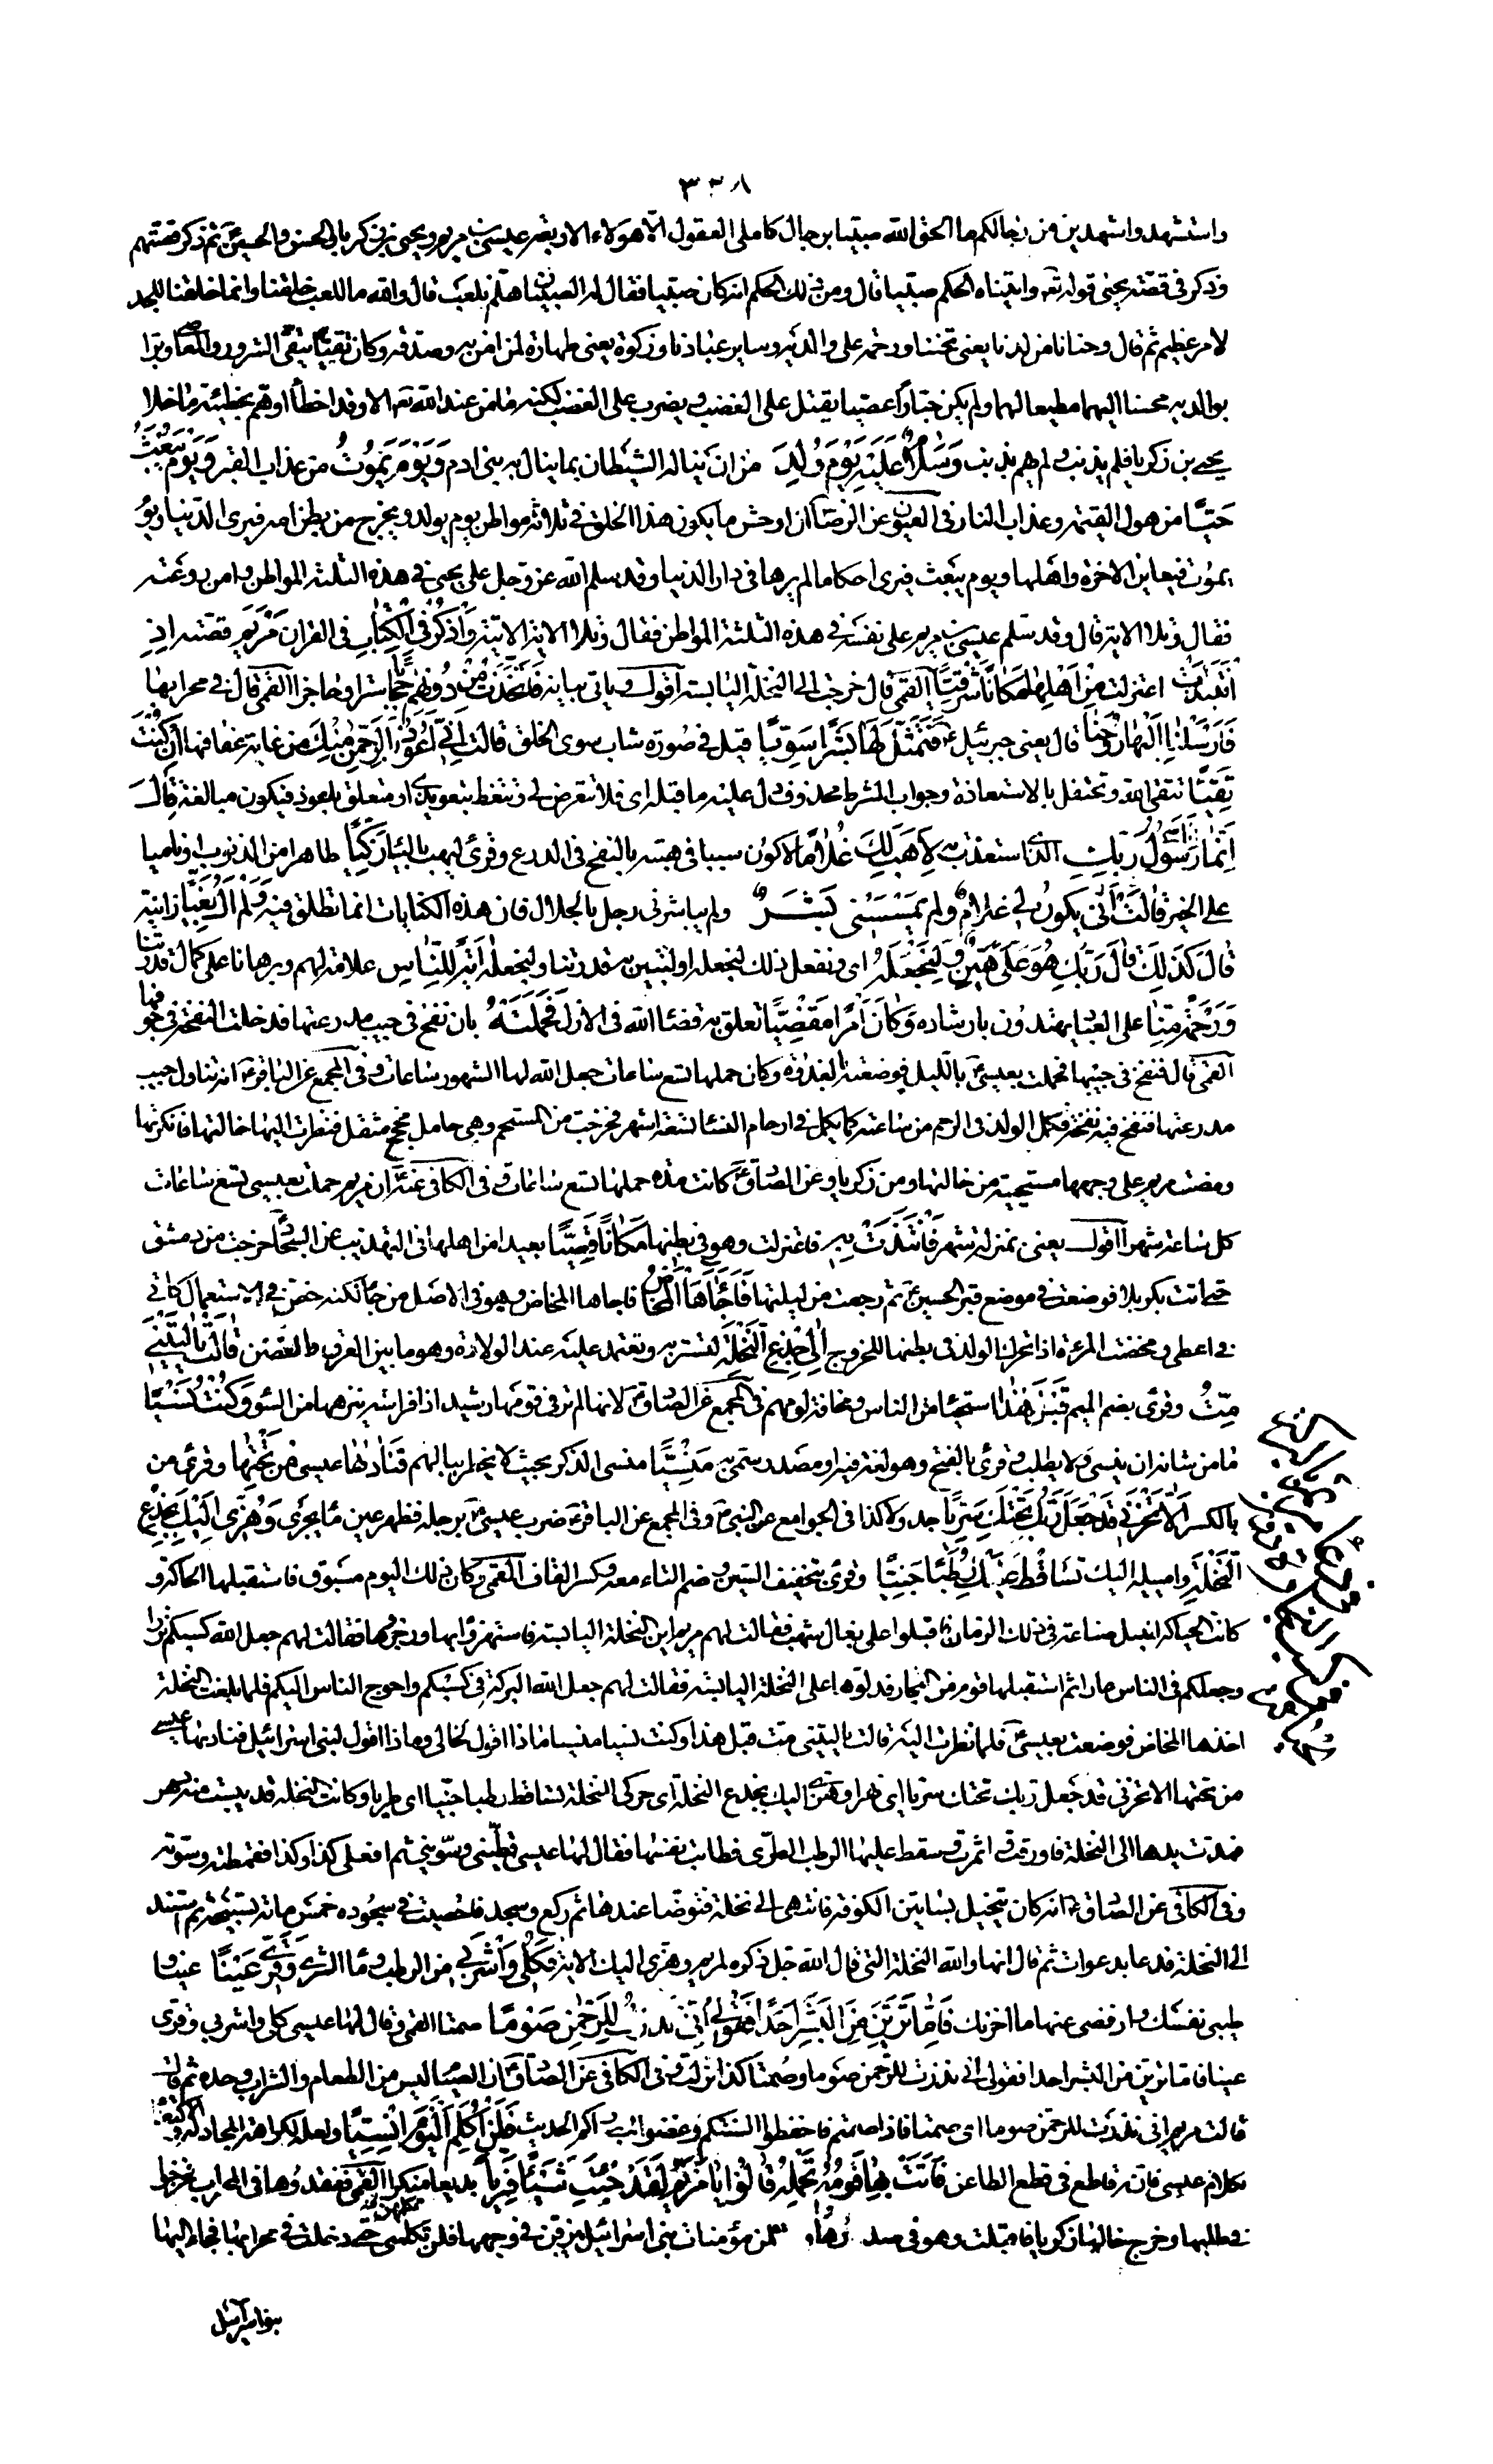 ٣٣٨
واستشهد واشهدين من رجالكم ما الحق الله صبيا برجال كاملى العقول الّا هؤلاء الاربعة عيسى بن مريم ويحيى بن زكريا والحسن والحسين ثم ذكر قصتهم
وذكر فى قصّة يحيى قوله تع واتيناه الحكم صبيا قال ومن ذلك الحكم انه كان صبيا فقال له الصبيان هلم نلعب قال والله ما للعب خلقنا وانما خلقنا للجد
لامر عظيم ثم قال وحنانا من لدنا يعنى تحننا ورحمة على والديه وساير عبادنا وزكوة يعنى طهارة لمن امن به وصدقه وكان تقيّا يتقى الشرور والمعاصى وبرا
بوالديه محسنا اليهما مطيعا لهما ولم يكن جبّارا عصيا يقتل على الغضب ويضرب على الغضب لكنه ما من عبد الله تع الا وقد اخطأ او همّ بخطيئة ما خلا
يحيى بن زكريا فلم يذنب ولم يهم بذنب وَسَلامٌ عَلَيْهِ يَوْمَ وُلِدَ من ان يناله الشيطان بما ينال به بنى ادم وَيَوْمَ يَمُوتُ من عذاب القبر وَيَوْمَ يُبْعَثُ
حَيّاً من هول القيمة وعذاب النار فى العيون عن الرضا ان اوحش ما يكون هذا الخلق فى ثلاثة مواطن يوم يولد ويخرج من بطن امه فيرى الدنيا ويوم
يموت فيعاين الاخرة واهلها ويوم يبعث فيرى احكاما لم يرها فى دار الدنيا وقد سلم الله عز وجل على يحيى فى هذه الثلثة المواطن وامن روعته
فقال وتلا الاية قال وقد سلم عيسى بن مريم على نفسه فى هذه الثلثة المواطن فقال وتلا الاية الاتية وَاذْكُرْ فِى الْكِتابِ فى القران مَرْيَمَ قصتها اِذِ
انْتَبَذَتْ اعتزلت مِنْ اَهْلِها مَكاناً شَرْقِيّاً القمى قال خرجت الى النخلة اليابسة اقول وياتى بيانه فَاتَّخَذَتْ مِنْ دُونِهِمْ حِجاباً سترا وحاجزا القمى قال فى محرابها
فَاَرْسَلْنا اِلَيْها رُوحَنا قال يعنى جبرئيل فَتَمَثَّلَ لَها بَشَراً سَوِيّاً قيل فى صورة شاب سوى الخلق قالَتْ اِنِّى اَعُوذُ بِالرَّحْمنِ مِنْكَ من غاية عفافها اِنْ كُنْتَ
تَقِيّاً تتقى الله وتحتفل بالاستعاذة وجواب الشرط محذوف دل عليه ما قبله اى فلا تتعرض لى وتتعظ بتعويذى او متعلق باعوذ فيكون مبالغة قالَ
اِنَّما اَنَا رَسُولُ رَبِّكِ الذى استعذت به لِاَهَبَ لَكِ غُلاماً لاكون سببا فى هبته بالنفخ فى الدرع وقرئ ليهب بالياء زَكِيّاً طاهرا من الذنوب او ناميا
على الخير قالَتْ اَنّى يَكُونُ لِى غُلامٌ وَلَمْ يَمْسَسْنِى بَشَرٌ ولم يباشرنى رجل بالحلال فان هذه الكنايات انما تطلق فيه وَلَمْ اَكُ بَغِيّاً زانية
قالَ كَذلِكِ قالَ رَبُّكِ هُوَ عَلَىَّ هَيِّنٌ وَلِنَجْعَلَهُ اى ونفعل ذلك لنجعله او لنبين به قدرتنا ولنجعله ايَةً لِلنّاسِ علامة لهم وبرهانا على كمال قدرتنا
وَرَحْمَةً مِنّا على العباد يهتدون بارشاده وَكانَ اَمْراً مَقْضِيّاً تعلق به قضاء الله فى الازل فَحَمَلَتْهُ بان نفخ فى جيب مدرعتها فدخلت النفخة فى جوفها
القمى قال فنفخ فى جيبها فحملت بعيسى بالليل فوضعته بالغداة وكان حملها تسع ساعات جعل الله لها الشهور ساعات وفى المجمع عن الباقر انه تناول جيب
مدرعتها فنفخ فيه نفخة فكمل الولد فى الرحم من ساعته كما يكمل فى ارحام النساء تسعة اشهر فخرجت من المستحم وهى حامل محج مثقل فنظرت اليها خالتها فانكرتها
ومضت مريم على وجهها مستحيية من خالتها ومن زكريا وعن الصادق كانت مدة حملها تسع ساعات وفى الكافى عنه ان مريم حملت بعيسى تسع ساعات
كل ساعة شهرا اقول يعنى بمنزلة شهر فَانْتَبَذَتْ بِهِ فاعتزلت وهو فى بطنها مَكاناً قَصِيّاً بعيدا من اهلها فى التهذيب عن السجاد خرجت من دمشق
حتى اتت كربلا فوضعته فى موضع قبر الحسين ثم رجعت من ليلتها فَاَجاءَهَا الْمَخاضُ فاجاها المخاض وهو فى الاصل من جاء لكنه خص فى الاستعمال كاتى
فى اعطى ومخضت المرءة اذا تحرك الولد فى بطنها للخروج اِلى جِذْعِ النَّخْلَةِ لتستتر به وتعتمد عليه عند الولادة وهو ما بين العرق والغصن قالَتْ يا لَيْتَنِى
مِتُّ وقرئ بضم الميم قَبْلَ هذا استحياء من الناس ومخافة لومهم فى المجمع عن الصادق لانها لم تر فى قومها رشيدا ذا فراسة ينزهها من السوء وَكُنْتُ نَسْياً
ما من شانه ان ينسى ولا يطلب وقرئ بالفتح وهو لغة فيه او مصدر سمى به مَنْسِيّاً منسى الذكر بحيث لا يخطر ببالهم فَناداها عيسى مِنْ تَحْتِها وقرئ من
بالكسر اَلّا تَحْزَنِى قَدْ جَعَلَ رَبُّكِ تَحْتَكِ سَرِيّاً جدولا كذا فى الجوامع عن النبى وفى المجمع عن الباقر ضرب عيسى برجله فظهر عين ماء يجرى وَهُزِّى اِلَيْكِ بِجِذْعِ
النَّخْلَةِ واميليه اليك تُساقِطْ عَلَيْكِ رُطَباً جَنِيّاً وقرئ بتخفيف السين وضم التاء معه وكسر القاف القمى وكان ذلك اليوم سوق فاستقبلها الحاكة و
كانت الحياكة انبل صناعة فى ذلك الزمان فاقبلوا على بغال شهب فقالت لهم مريم اين النخلة اليابسة فاستهزؤا بها وزجروها فقالت لهم جعل الله كسبكم نزرا
وجعلكم فى الناس عارا ثم استقبلها قوم من التجار فدلوها على النخلة اليابسة فقالت لهم جعل الله البركة فى كسبكم واحوج الناس اليكم فلما بلغت النخلة
اخذها المخاض فوضعت بعيسى فلما نظرت اليه قالت يا ليتنى مت قبل هذا وكنت نسيا منسيا ماذا اقول لخالى وماذا اقول لبنى اسرائيل فناديها عيسى
من تحتها الا تحزنى قد جعل ربك تحتك سريا اى نهرا وهزى اليك بجذع النخلة اى حركى النخلة تساقط رطبا جنيا اى طريا وكانت النخلة قد يبست منذ دهر
فمدت يدها الى النخلة فاورقت واثمرت وسقط عليها الرطب الطرى فطابت نفسها فقال لها عيسى قمطينى وسوينى ثم افعلى كذا وكذا فقمطته وسوته
وفى الكافى عن الصادق انه كان يتخلل بساتين الكوفة فانتهى الى نخلة فتوضا عندها ثم ركع وسجد فاحصيت فى سجوده خمس مائة تسبيحة ثم استند
الى النخلة فدعا بدعوات ثم قال انها والله النخلة التى قال الله جل ذكره لمريم وهزى اليك الاية فَكُلِى وَاشْرَبِى من الرطب وماء السرى وَقَرِّى عَيْناً
طيبى نفسك وارفضى عنها ما احزنك فَاِمّا تَرَيِنَّ مِنَ الْبَشَرِ اَحَداً فَقُولِى اِنِّى نَذَرْتُ لِلرَّحْمنِ صَوْماً صمتا القمى وقال لها عيسى كلى واشربى وقرى
عينا فاما ترين من البشر احدا فقولى انى نذرت للرحمن صوما وصمتا كذا نزلت وفى الكافى عن الصادق ان الصيام ليس من الطعام والشراب وحده ثم قال
قالت مريم انى نذرت للرحمن صوما اى صمتا فاذا صمتم فاحفظوا السنتكم وغضوا ابصاركم الحديث فَلَنْ اُكَلِّمَ الْيَوْمَ اِنْسِيّاً ولعله لكراهة المجادلة
بكلام عيسى فانه قاطع فى قطع الطاعن فَاَتَتْ بِهِ قَوْمَها تَحْمِلُهُ قالُوا يا مَرْيَمُ لَقَدْ جِئْتِ شَيْئاً فَرِيّاً بديعا منكرا القمى ففقدوها فى المحراب فخرجوا
فى طلبها وخرج خالها زكريا فاقبلت وهو فى صدرها مؤمنات بنى اسرائيل يبزقن فى وجهها فلم تكلمهن حتى دخلت فى محرابها فجاء اليها